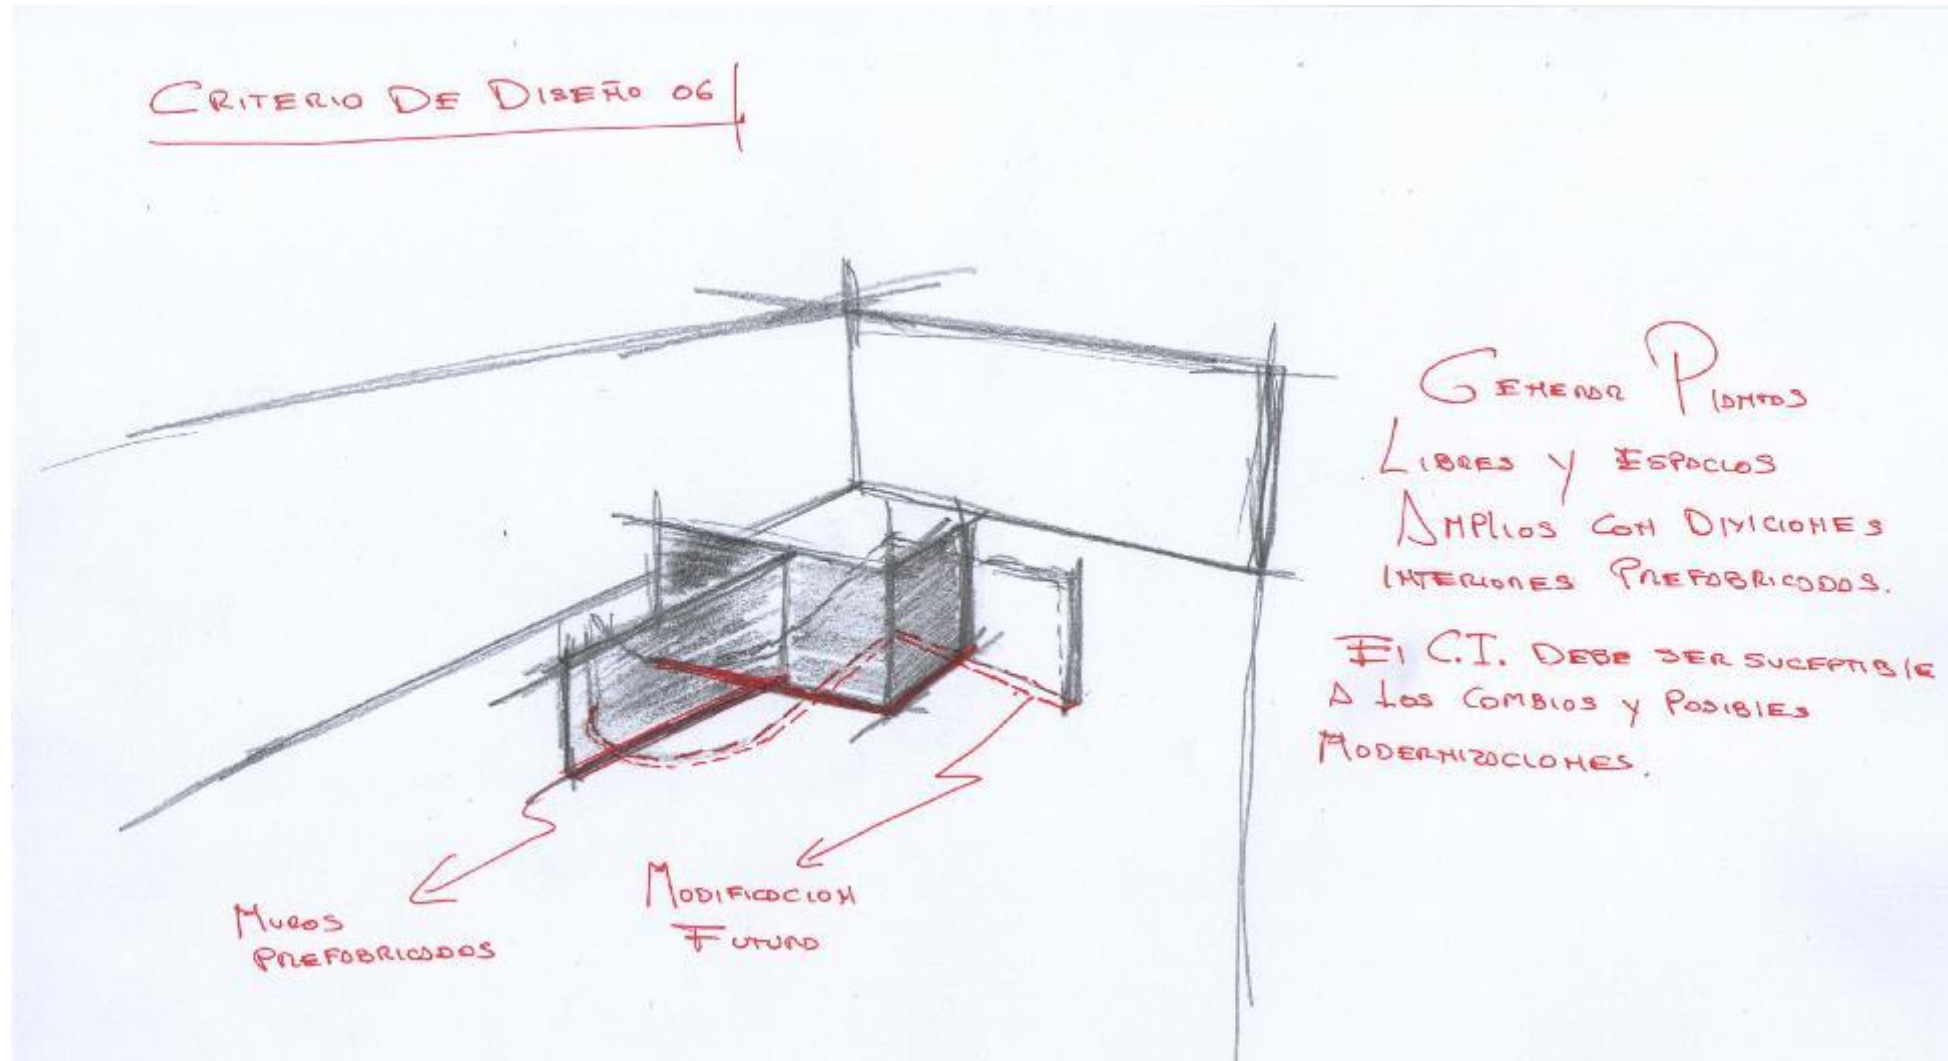 CRITERIO DE DISEÑO 06
GENERAR PLANTAS
LIBRES Y ESPACIOS
AMPLIOS CON DIVICIONES
INTERIORES PREFABRICADAS.
El C.I. DEBE SER SUCEPTIBLE
A LOS CAMBIOS Y POSIBLES
MODERNIZACIONES.
MUROS
PREFABRICADOS
MODIFICACION
FUTURA